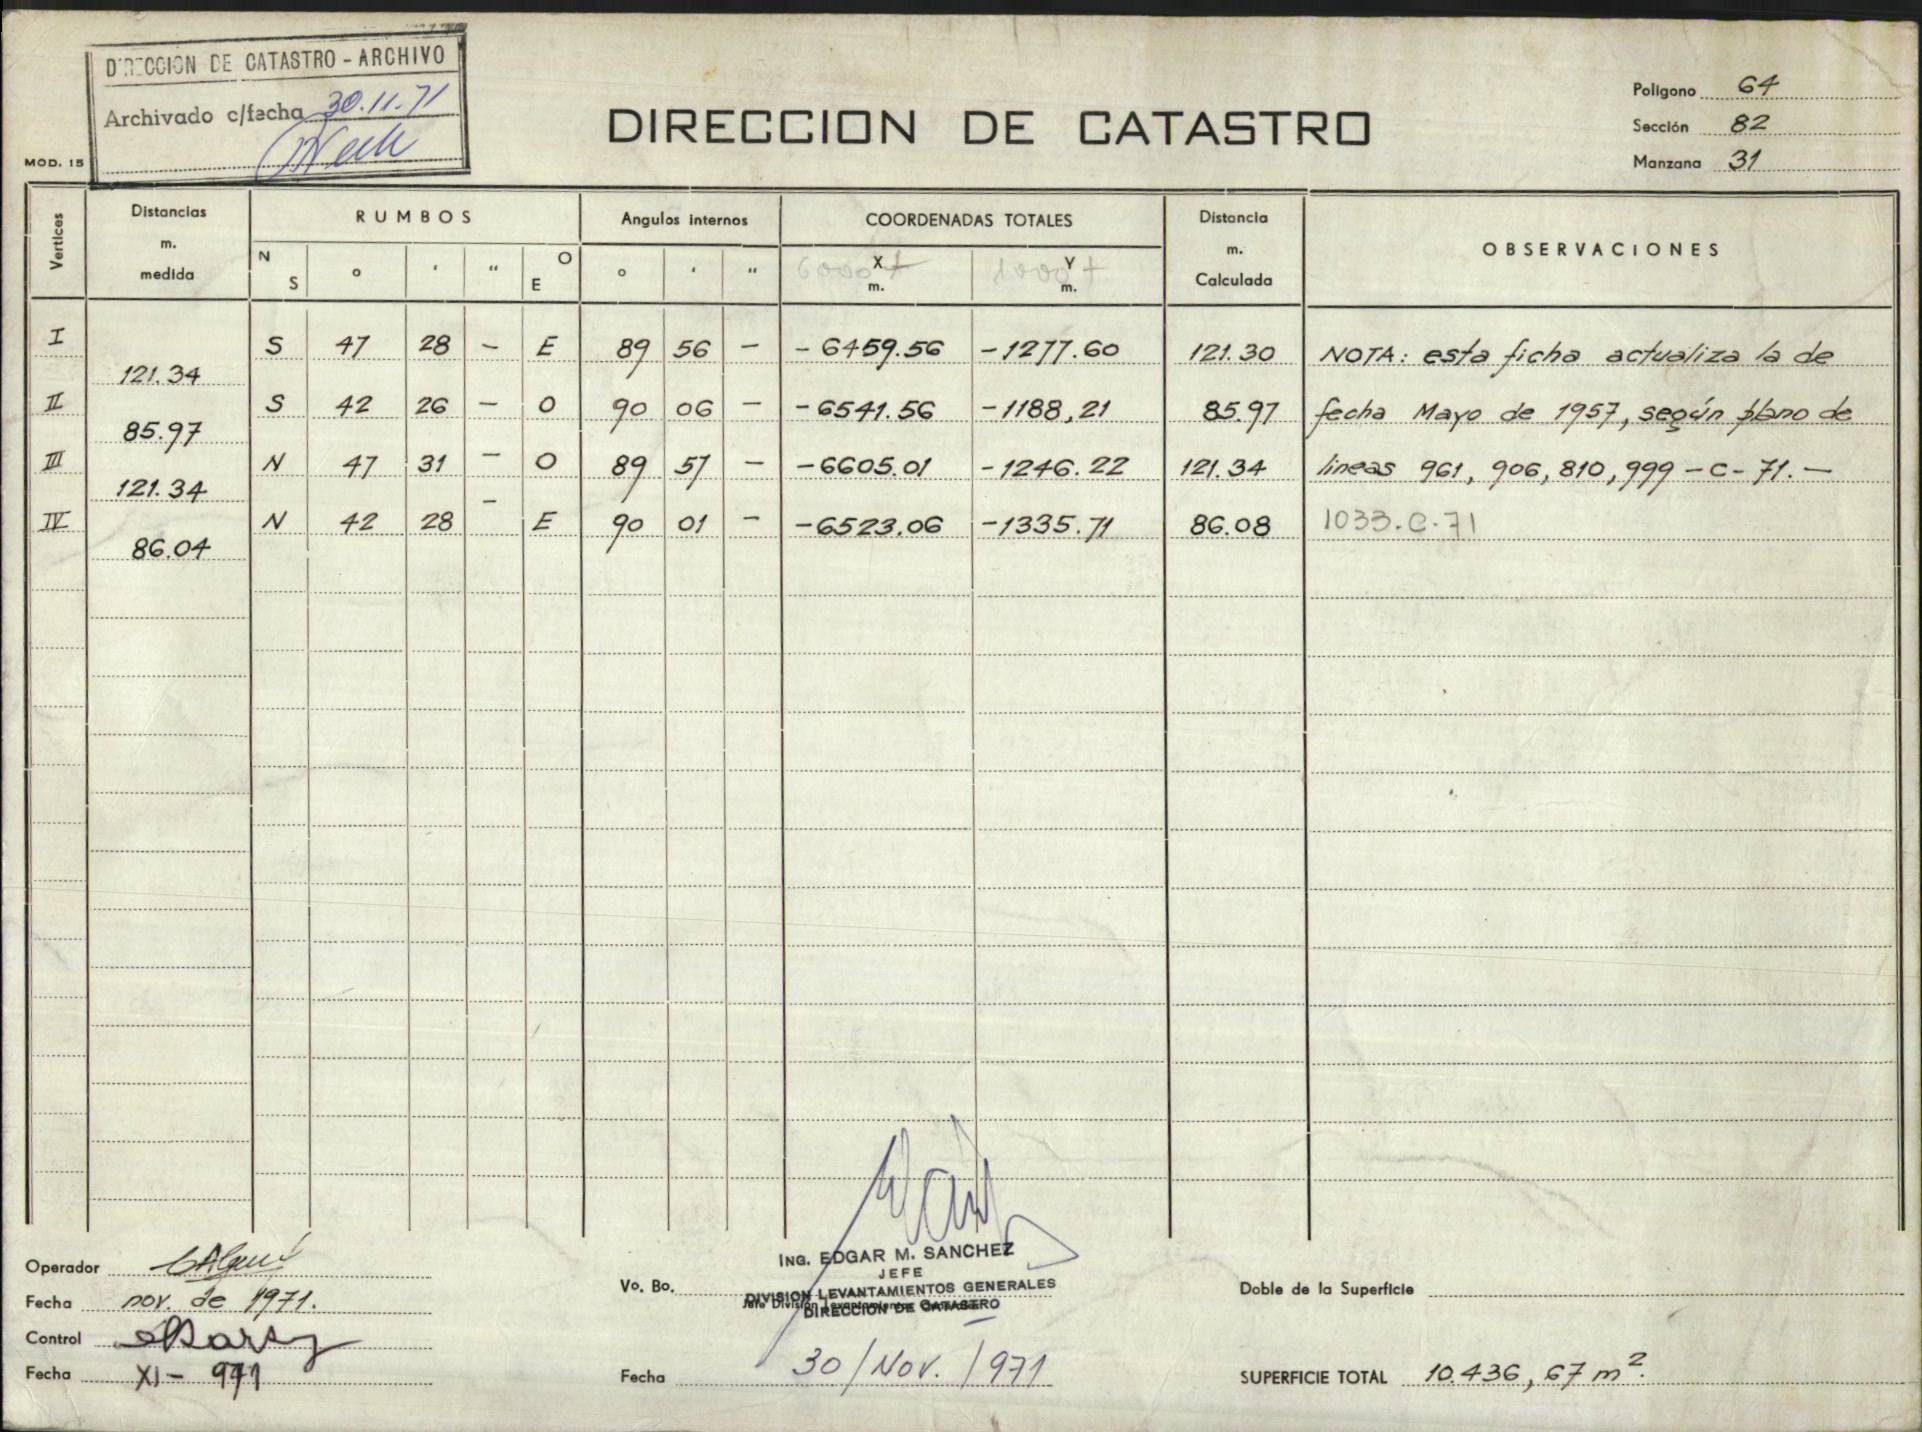 DIRECCION DE CATASTRO - ARCHIVO
Archivado c/fecha 30.11.71
MOD. 15
DIRECCION DE CATASTRO
Poligono 64
Sección 82
Manzana 31
Vertices
Distancias m. medida
RUMBOS
Angulos internos
COORDENADAS TOTALES
Distancia m. Calculada
OBSERVACIONES
N S ° ' " O E ° ' " X m. Y m.
I S 47 28 — E 89 56 — -6459.56 -1277.60 121.30 NOTA: esta ficha actualiza la de
121.34
II S 42 26 — O 90 06 — -6541.56 -1188,21 85.97 fecha Mayo de 1957, según plano de
85.97
III N 47 31 — O 89 57 — -6605.01 -1246.22 121.34 lineas 961, 906, 810, 999 - C - 71. —
121.34
IV N 42 28 — E 90 01 — -6523.06 -1335.71 86.08 1033.C.71
86.04
Operador
Fecha nov. de 1971.
Control
Fecha XI - 971
Vo. Bo.
ING. EDGAR M. SANCHEZ
JEFE
DIVISION LEVANTAMIENTOS GENERALES
Jefe División Levantamientos
DIRECCION DE CATASTRO
Fecha 30/Nov./971
Doble de la Superficie
SUPERFICIE TOTAL 10.436,67 m².